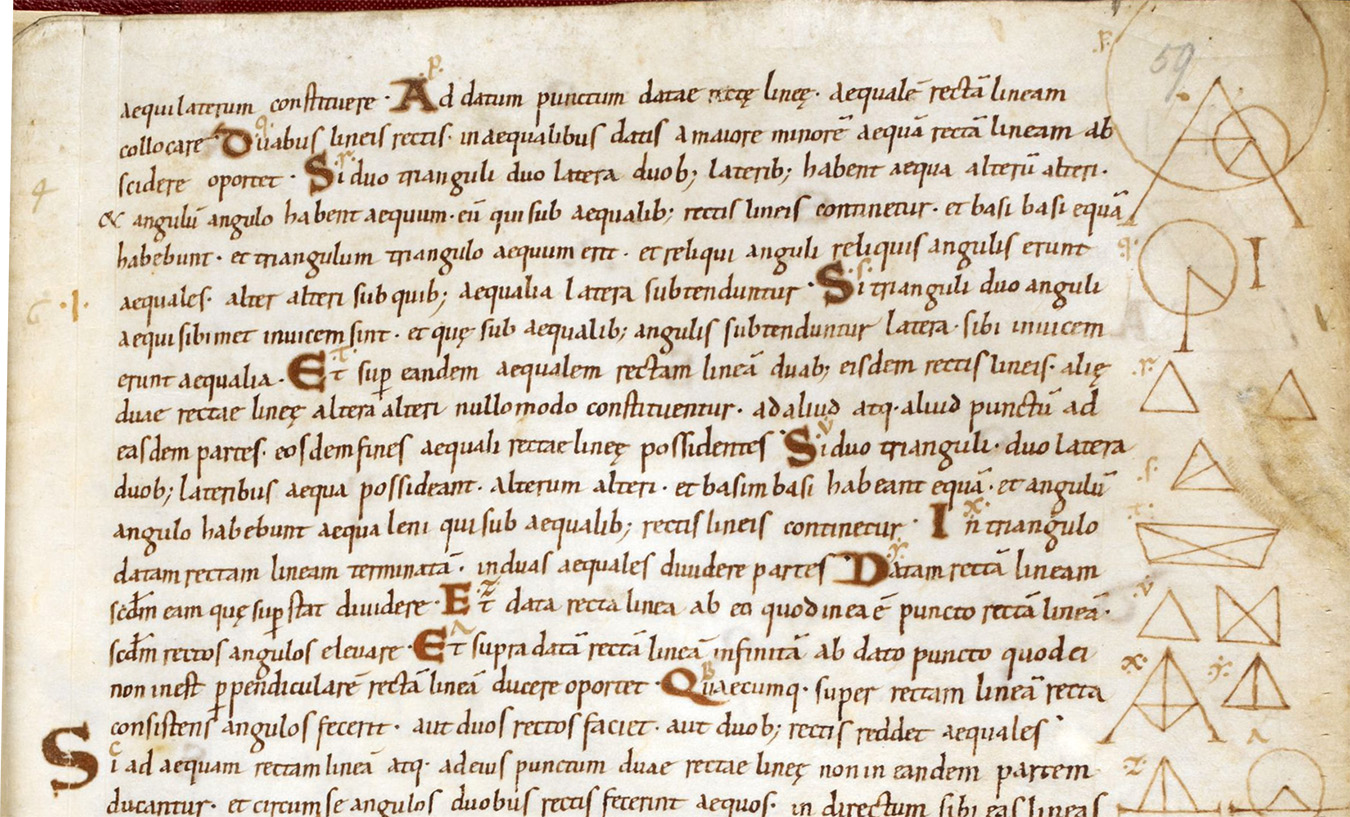 aequilaterum constituere · Ad datum punctum datae rectę lineę · aequalē rectā lineam
collocare Duabus lineis rectis · inaequalibus datis a maiore minorē aequā rectā lineam ab
scidere oportet · Si duo trianguli duo latera duob; laterib; habent aequa alterū alteri ·
& angulū angulo habent aequum · eū qui sub aequalib; rectis lineis continetur · et basi basi equā
habebunt · et triangulum triangulo aequum erit · et reliqui anguli reliquis angulis erunt
aequales · alter alteri sub quib; aequalia latera subtenduntur · Si trianguli duo anguli
aequi sibimet inuicem sint · et quę sub aequalib; angulis subtenduntur latera · sibi inuicem
erunt aequalia · Et suꝑ eandem aequalem rectam lineā duab; eisdem rectis lineis · alię
duae rectae lineę altera alteri nullo modo constituentur · ad aliud atq · aliud punctū ad
easdem partes · eosdem fines aequali rectae lineę possidentes Si duo trianguli · duo latera
duob; lateribus aequa possideant · alterum alteri · et basim basi habeant equā · et angulū
angulo habebunt aequalem qui sub aequalib; rectis lineis continetur · In triangulo
datam rectam lineam terminatā · in duas aequales diuidere partes Datam rectā lineam
scd̄m eam quę suꝑstat diuidere · Et data recta linea ab eo quod in ea ē puncto rectā lineā ·
scd̄m rectos angulos eleuare · Et supra datā rectā lineā infinitā ab dato puncto quod ei
non inest ꝑpendicularē rectā lineā ducere oportet · Quaecumq · super rectam lineā recta
consistens angulos fecerit · aut duos rectos faciet · aut duob; rectis reddet aequales
Si ad aequam rectam lineā atq · ad eius punctum duae rectae lineę non in eandem partem
ducantur · et circum se angulos duobus rectis fecerint aequos · in directum sibi eas lineas
59